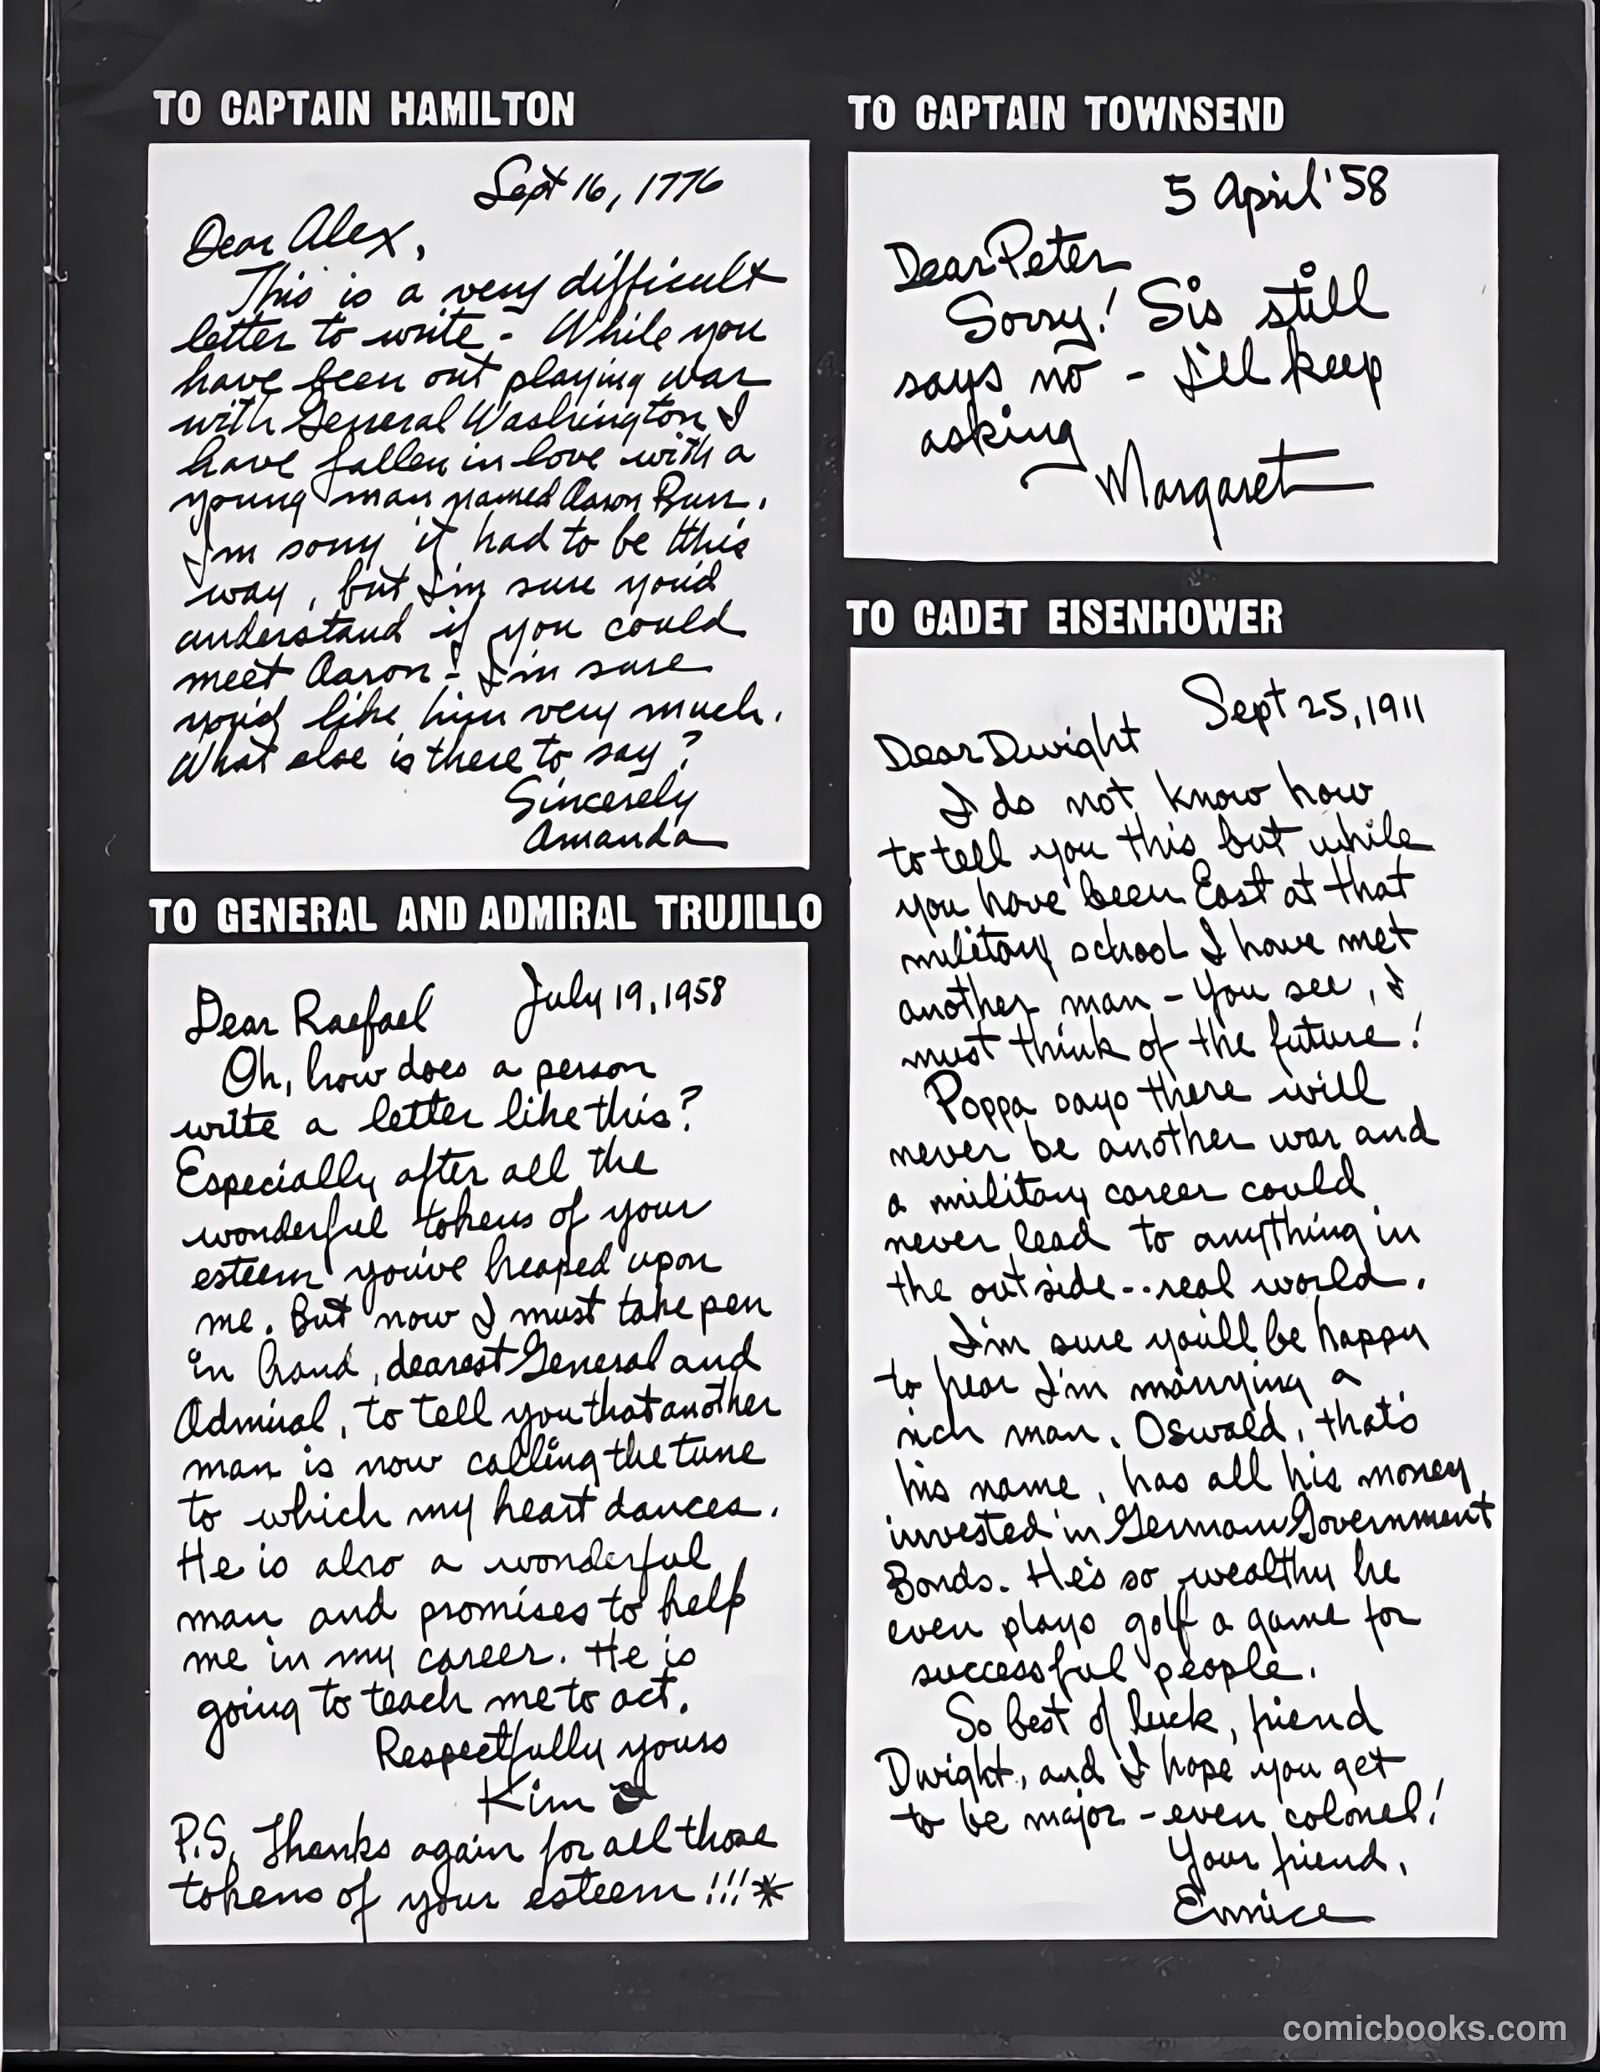 TO CAPTAIN HAMILTON
Sept 16, 1776
Dear Alex,
This is a very difficult
letter to write - While you
have been out playing war
with General Washington I
have fallen in love with a
young man named Aaron Burr.
I'm sorry it had to be this
way, but I'm sure you'd
understand if you could
meet Aaron - I'm sure
you'd like him very much.
What else is there to say?
Sincerely
Amanda
TO GENERAL AND ADMIRAL TRUJILLO
July 19, 1958
Dear Raefael
Oh, how does a person
write a letter like this?
Especially after all the
wonderful tokens of your
esteem you've heaped upon
me. But now I must take pen
in hand, dearest General and
Admiral, to tell you that another
man is now calling the tune
to which my heart dances.
He is also a wonderful
man and promises to help
me in my career. He is
going to teach me to act.
Respectfully yours
Kim
P.S. Thanks again for all those
tokens of your esteem!!!*
TO CAPTAIN TOWNSEND
5 April '58
Dear Peter
Sorry! Sis still
says no - I'll keep
asking
Margaret
TO CADET EISENHOWER
Sept 25, 1911
Dear Dwight
I do not know how
to tell you this but while
you have been East at that
military school I have met
another man - You see, I
must think of the future!
Poppa says there will
never be another war and
a military career could
never lead to anything in
the outside.. real world.
I'm sure you'll be happy
to hear I'm marrying a
rich man. Oswald, that's
his name, has all his money
invested in German Government
Bonds. He's so wealthy he
even plays golf a game for
successful people.
So best of luck, friend
Dwight, and I hope you get
to be major - even colonel!
Your friend,
Eunice
comicbooks.com